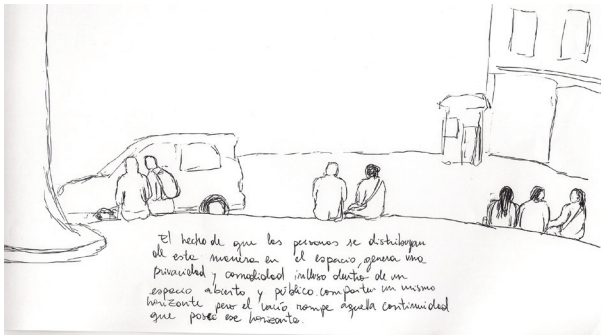 El hecho de que las personas se distribuyan
de esta manera en el espacio, genera una
privacidad y comodidad incluso dentro de un
espacio abierto y público. comparten un mismo
horizonte pero el vacío rompe aquella continuidad
que posee ese horizonte.